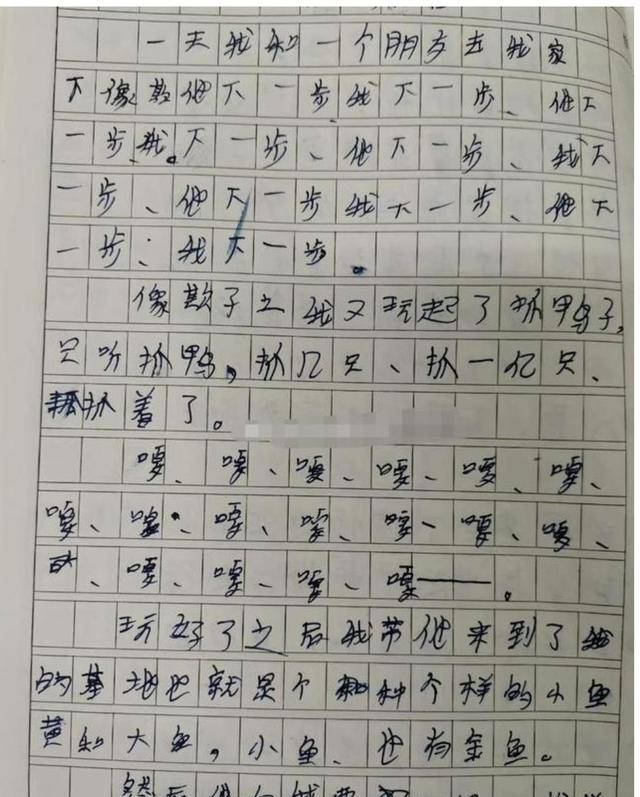 一天我和一个朋友去我家
下像欺他下一步我下一步、他下
一步我。下一步、他下一步、我下
一步、他下一步我下一步、他下
一步、我下一步。
像欺子之我又玩起了抓鸭子,
只听抓鸭,抓几只、抓一亿只、
抓着了。
嘎、嘎、嘎、嘎、嘎、嘎、
嘎、嘎、嘎、嘎、嘎、嘎、嘎、
嘎、嘎、嘎、嘎——。
玩好了之后我带他来到了我
的基地也就是个种个样的小鱼
黄和大鱼,小鱼、也有金鱼。